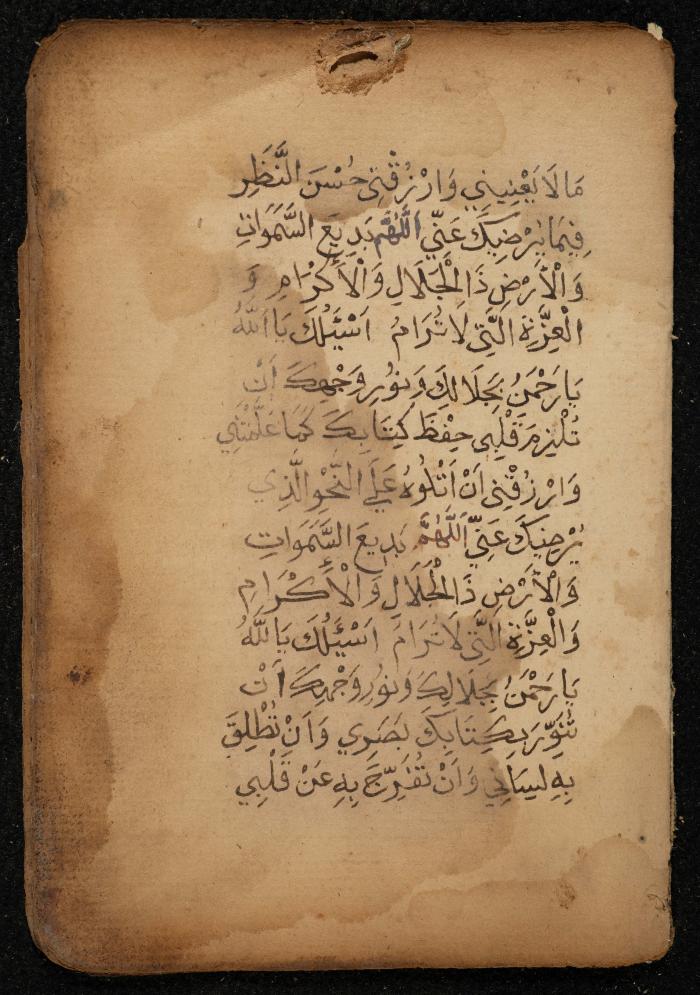 مَا لَا يَعْنِينِي وَارْزُقْنِي حُسْنَ النَّظَرِ
فِيمَا يُرْضِيكَ عَنِّي اَللّٰهُمَّ بَدِيعَ السَّمَوَاتِ
وَالْأَرْضِ ذَالْجَلَالِ وَالْأَكْرَامِ وَ
الْعِزَّةِ الَّتِي لَا تُرَامُ اَسْئَلُكَ يَا اَللّٰهُ
يَا رَحْمَنُ بِجَلَالِكَ وَنُورِ وَجْهِكَ أَنْ
تُلْزِمَ قَلْبِي حِفْظَ كِتَابِكَ كَمَا عَلَّمْتَنِي
وَارْزُقْنِي اَنْ اَتْلُوهُ عَلَى النَّحْوِ الَّذِي
يُرْضِيكَ عَنِّي اَللّٰهُمَّ بَدِيعَ السَّمَوَاتِ
وَالْأَرْضِ ذَالْجَلَالِ وَالْأَكْرَامِ
وَالْعِزَّةِ الَّتِي لَا تُرَامَ اَسْئَلُكَ يَا للّٰهُ
يَا رَحْمَنُ بِجَلَالِكَ وَنُورِ وَجْهِكَ اَنْ
تُنَوِّرَ بِكِتَابِكَ بَصَرِي وَاَنْ تُطْلِقَ
بِهِ لِسَانِي وَاَنْ تُفَرِّجَ بِهِ عَنْ قَلْبِي